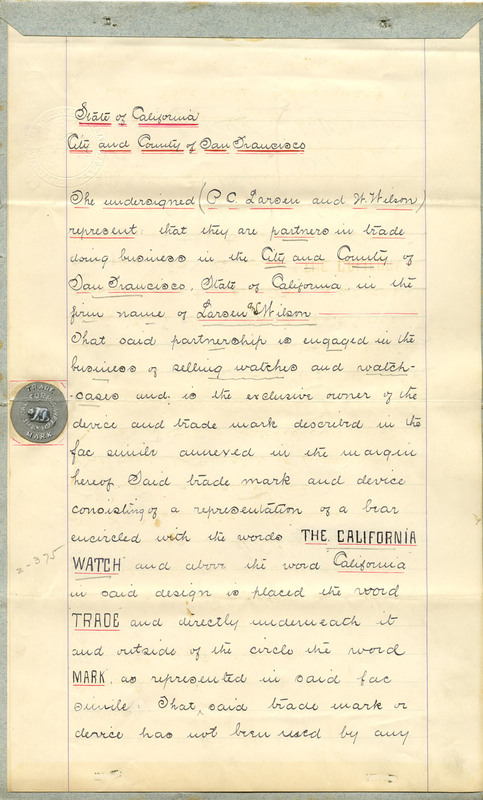 State of California
City and County of San Francisco
The undersigned (P. C. Larsen and W. Wilson)
represent: that they are partners in trade
doing business in the City and County of
San Francisco, State of California, in the
firm name of Larsen & Wilson
That said partnership is engaged in the
business of selling watches and watch-
-cases and is the exclusive owner of the
device and trade mark described in the
fac simile annexed in the margin
hereof. Said trade mark and device
consisting of a representation of a bear
encircled with the words THE CALIFORNIA
WATCH and above the word California
in said design is placed the word
TRADE and directly underneath it
and outside of the circle the word
MARK, as represented in said fac
simile: That, said trade mark or
device has not been used by any
TRADE
MARK
2-375